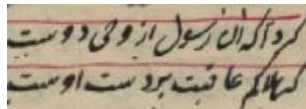 کرد آگه آن رسول از وحی دوست
که هلاکم عاقبت بر دست اوست